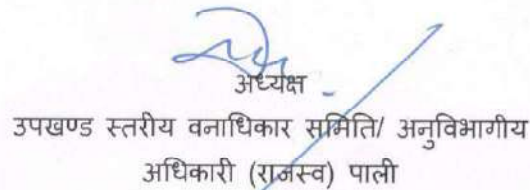 अध्यक्ष
उपखण्ड स्तरीय वनाधिकार समिति/ अनुविभागीय
अधिकारी (राजस्व) पाली